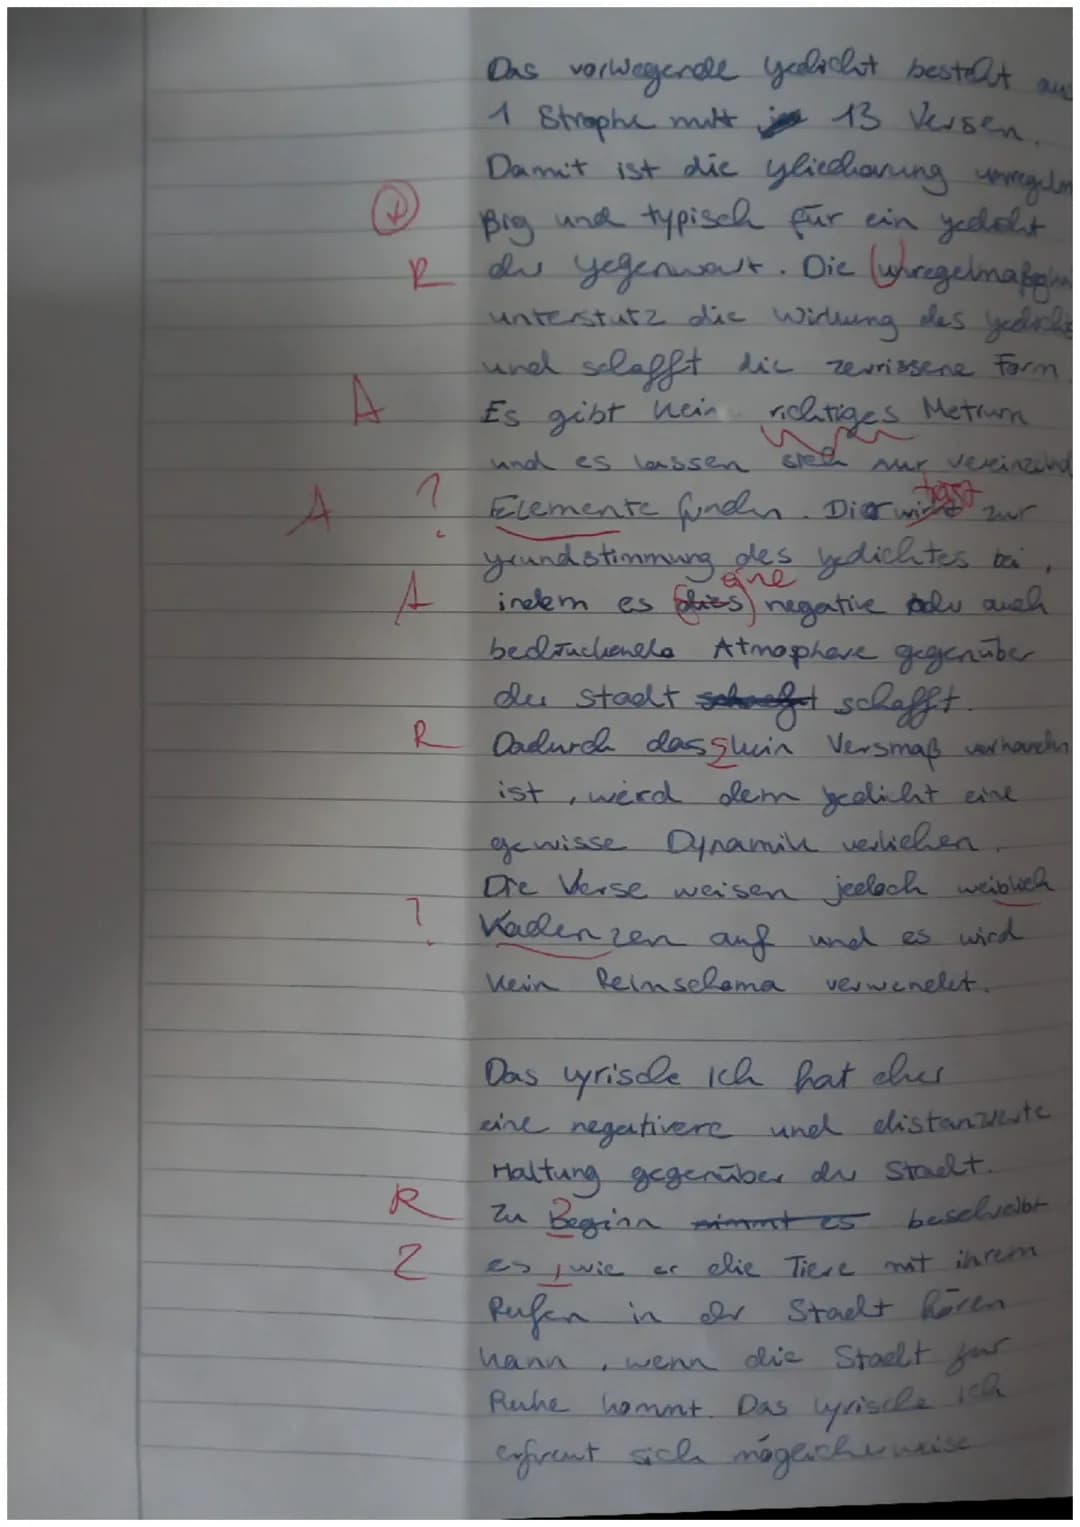 Das vorwegende Gedicht besteht aus
1 Strophe mitt 13 Versen.
Damit ist die Gliederung unregelm
ßig und typisch für ein Gedicht
R der Gegenwart. Die unregelmäßigkeit
unterstütz die Wirkung des Gedichts
und schafft die zerrissene Form.
A Es gibt kein richtiges Metrum
und es lassen sich nur vereinzelnd
A ? Elemente finden. Dies wird trägt zur
Grundstimmung des Gedichtes bei,
A indem es dies eine negative oder auch
bedrückende Atmosphäre gegenüber
der Stadt schafft schafft.
R Dadurch dass kein Versmaß vorhanden
ist, werd dem Gedicht eine
gewisse Dynamik verliehen.
Die Verse weisen jedoch weiblich
? Kadenzen auf und es wird
kein Reimschema verwendet.
Das lyrische Ich hat eher
eine negativere und distanzierte
Haltung gegenüber der Stadt.
R Zu Beginn nimmt es beschreibt
Z es, wie er die Tiere mit ihrem
Rufen in der Stadt hören
kann, wenn die Stadt zur
Ruhe kommt. Das lyrische Ich
erfreut sich möglicherweise